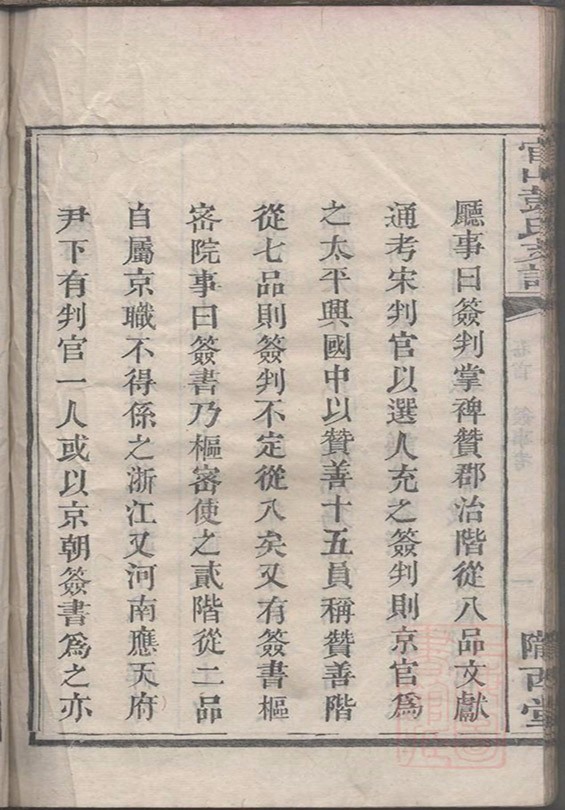 廳事曰簽判掌裨贊郡治階從八品文獻
通考宋判官以選人充之簽判則京官爲
之太平興國中以贊善十五員稱贊善階
從七品則簽判不定從八矣又有簽書樞
宻院事曰簽書乃樞宻使之貳階從二品
自屬京職不得係之浙江又河南應天府
尹下有判官一人或以京朝簽書爲之亦
隴西堂